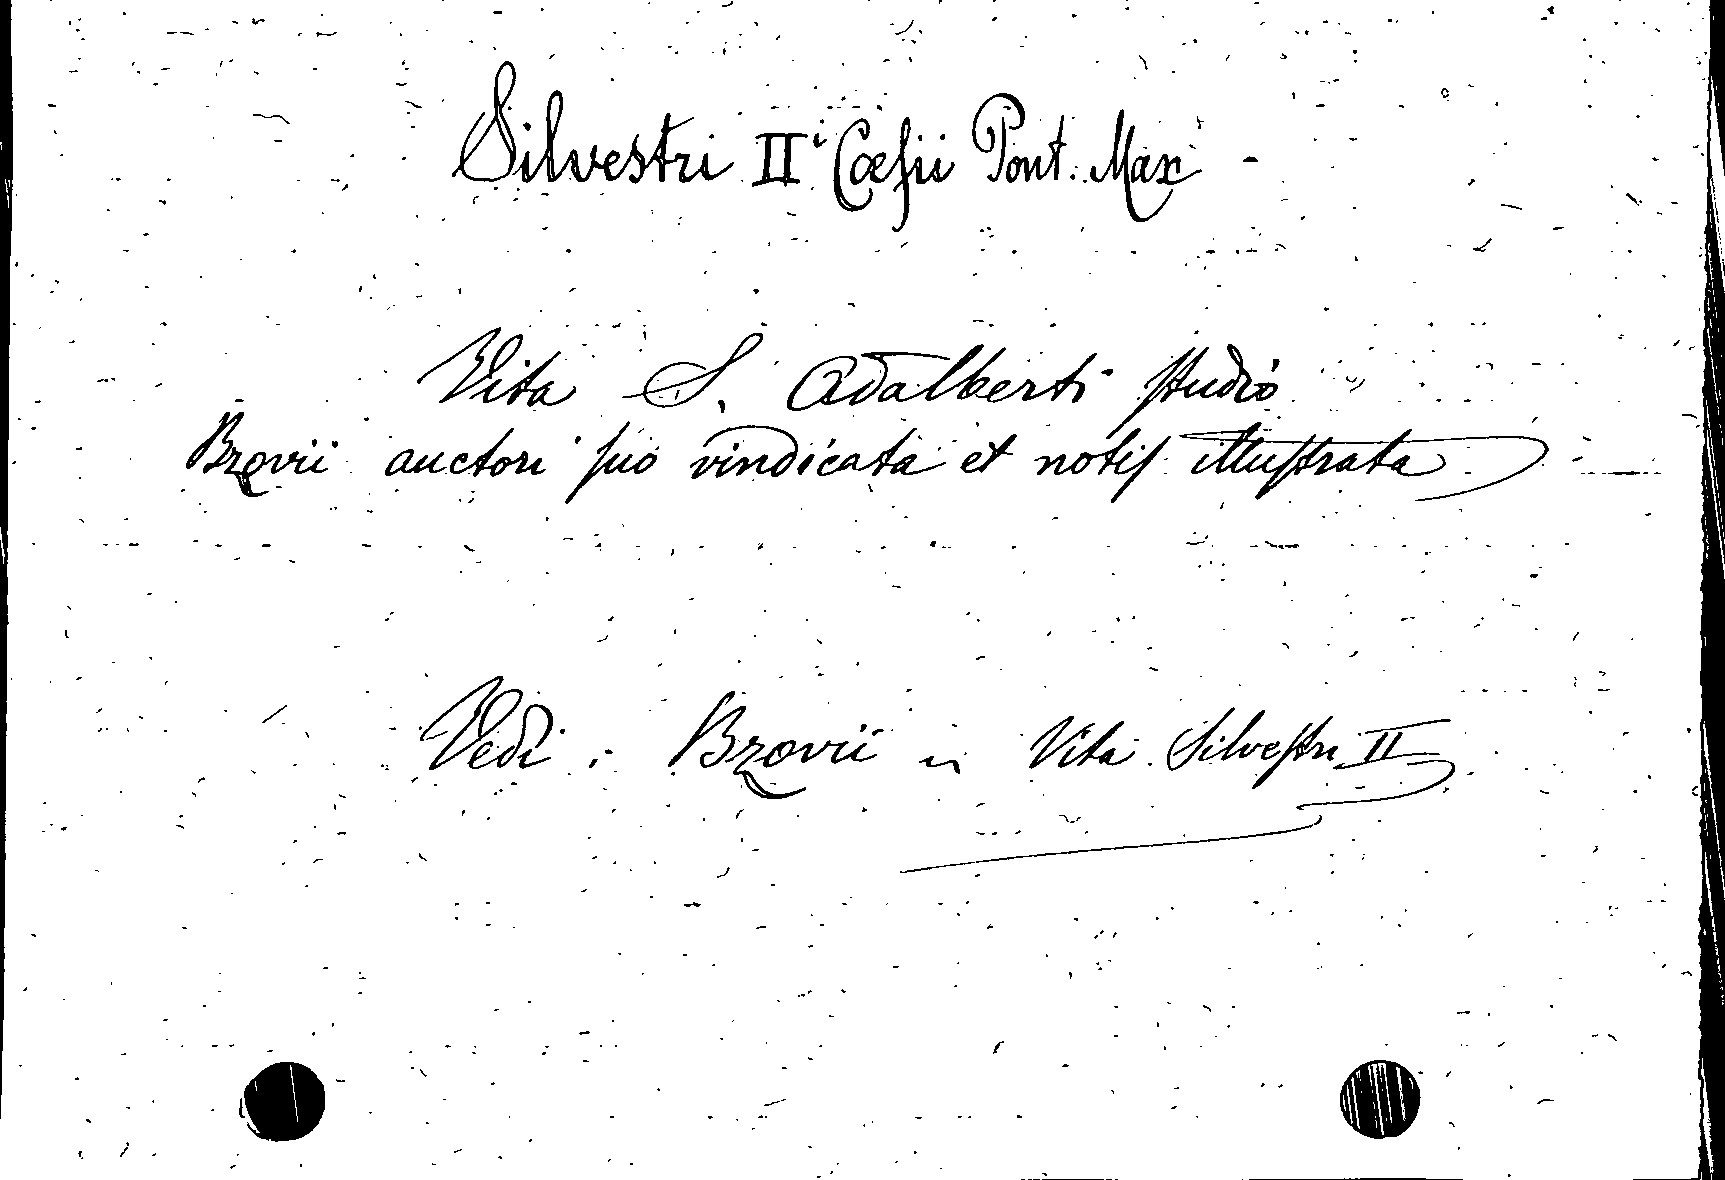 Silvestri IIi Cæsii Pont. Max
Vita S. Adalberti studio
Bzovii auctori suo vindicata et notis illustrata
Vedi: Bzovii in Vita Silvestri II